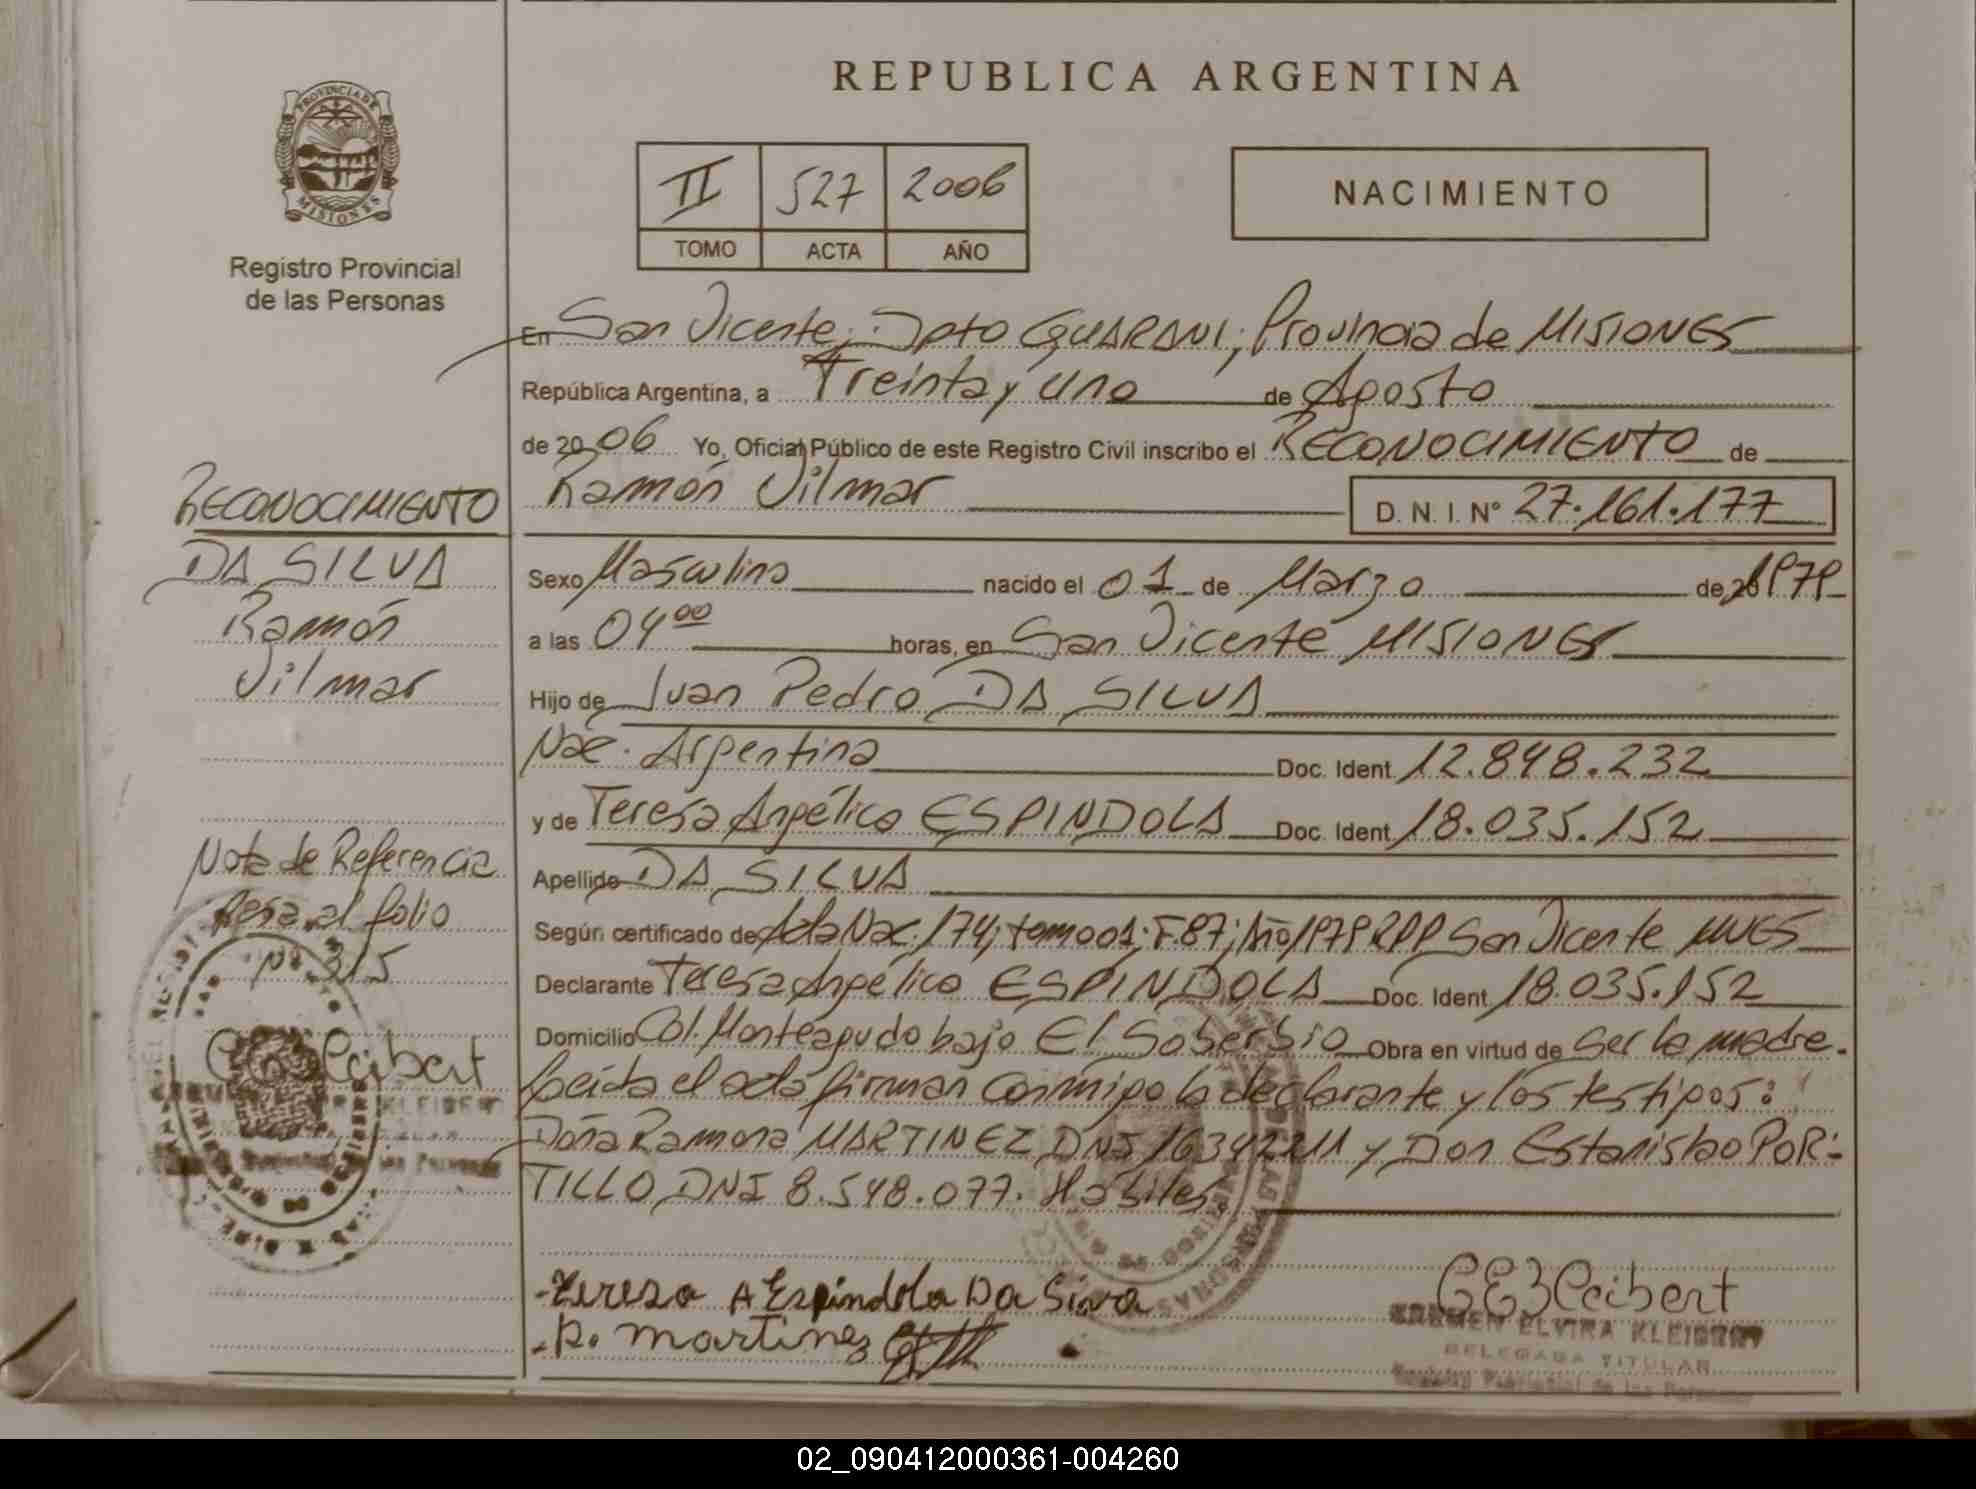 REPUBLICA ARGENTINA
PROVINCIA DE
MISIONES
Registro Provincial
de las Personas
II 527 2006
TOMO ACTA AÑO
NACIMIENTO
En San Vicente; Dpto GUARANI; Provincia de MISIONES
República Argentina, a Treinta y uno de Agosto
de 2006 Yo, Oficial Público de este Registro Civil inscribo el RECONOCIMIENTO de
Ramón Vilmar D. N. I. Nº 27.161.177
Sexo Masculino nacido el 01 de Marzo de 1979
a las 04 00 horas, en San Vicente MISIONES
Hijo de Juan Pedro DA SILVA
Nac. Argentina Doc. Ident 12.848.232
y de Teresa Angélica ESPINDOLA Doc. Ident 18.035.152
Apellido DA SILVA
Según certificado de Acta Nac. 174; tomo 01; F.87; Año 1979 RPP San Vicente MNES
Declarante Teresa Angélica ESPINDOLA Doc. Ident 18.035.152
Domicilio Col. Monteagudo bajo El Soberbio Obra en virtud de ser la madre.
Leída el acta firman conmigo la declarante y los testigos:
Doña Ramona MARTINEZ DNI 16342211 y Don Estanislao POR-
TILLO DNI 8.548.077. Hábiles
Teresa A Espindola Da Silva
R. martinez
CARMEN ELVIRA KLEIBERT
DELEGADA TITULAR
Registro Provincial de las Personas
RECONOCIMIENTO
DA SILVA
Ramón
Vilmar
Nota de Referencia
Pasa al folio
Nº 315
02_090412000361-004260